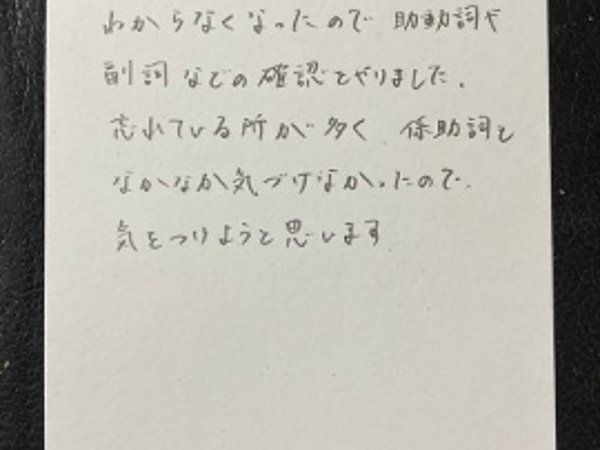 わからなくなったので 助動詞や
副詞などの確認をやりました。
忘れている所が多く、係助詞も
なかなか気づけなかったので、
気をつけようと思います